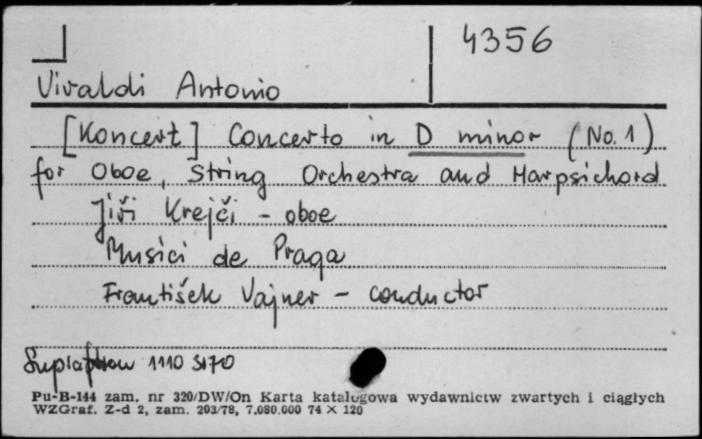 4356
Vivaldi Antonio
[Koncert] Concerto in D minor (No. 1)
for Oboe, String Orchestra and Harpsichord
Jiří Krejči - oboe
Musici de Praga
František Vajner - conductor
Supraphon 1110 3170
Pu-B-144 zam. nr 320/DW/On Karta katalogowa wydawnictw zwartych i ciągłych
WZGraf. Z-d 2, zam. 203/78, 7.080.000 74 × 120